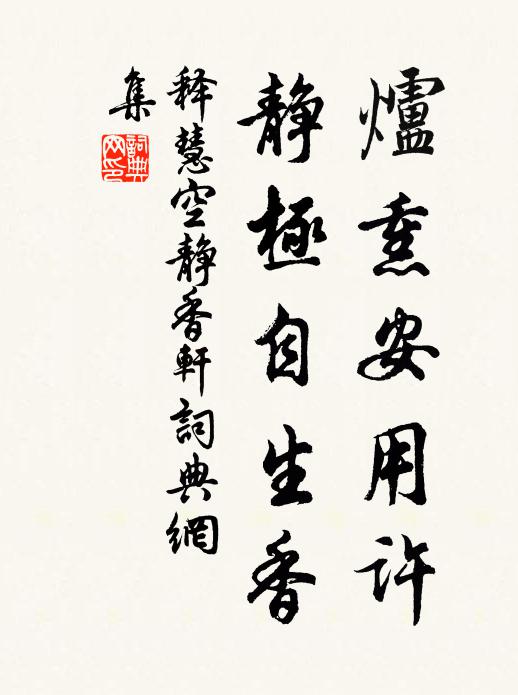 爐熏安用許
靜極自生香
释慧空靜香軒詞典網
集
詞典
网印